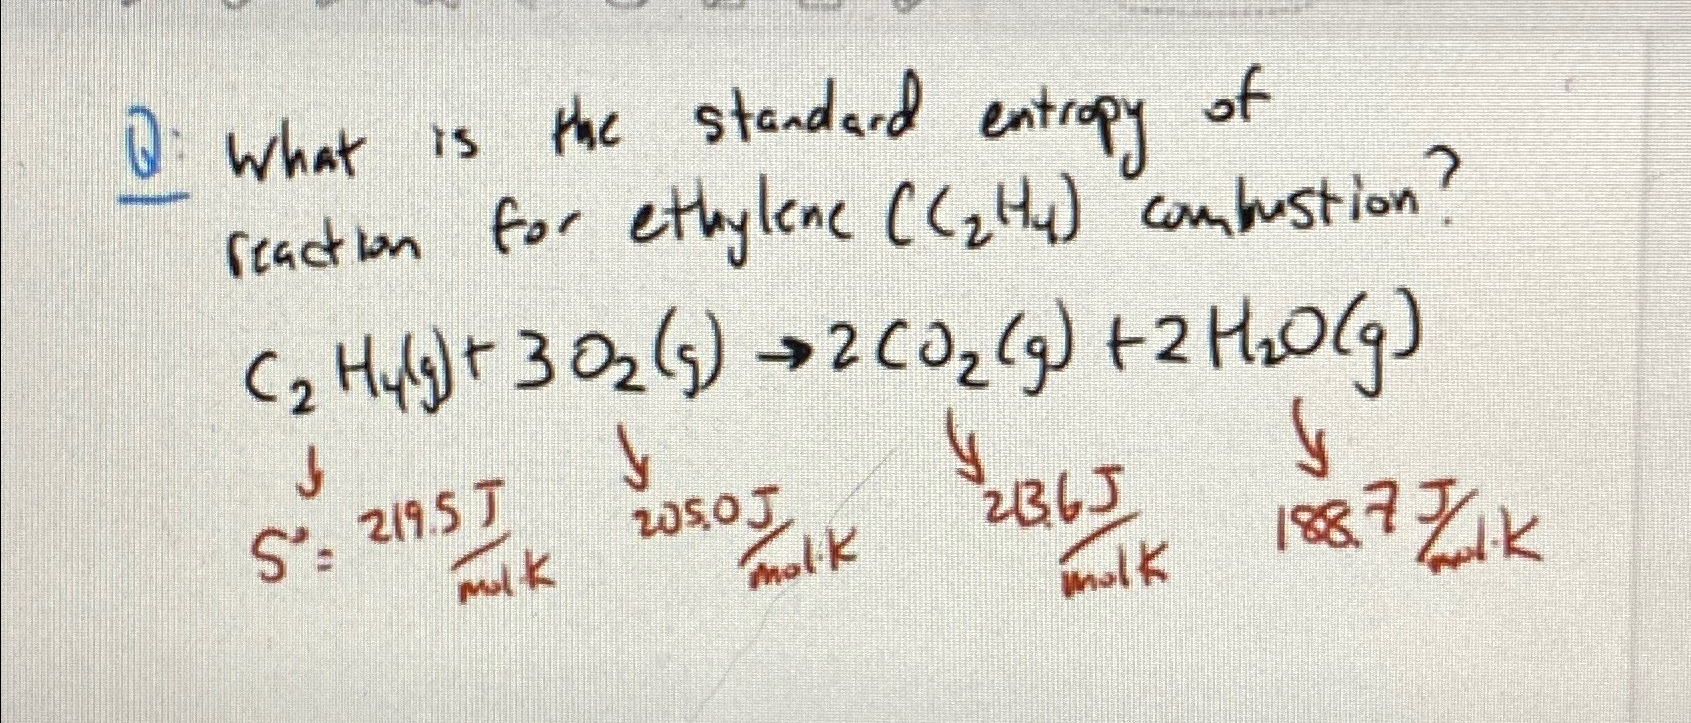 Q: What is the standard entropy of
reaction for ethylene (C₂H₄) combustion?
C₂H₄(g) + 3O₂(g) → 2CO₂(g) + 2H₂O(g)
S° = 219.5 J/mol·K 205.0 J/mol·K 213.6 J/mol·K 188.7 J/mol·K